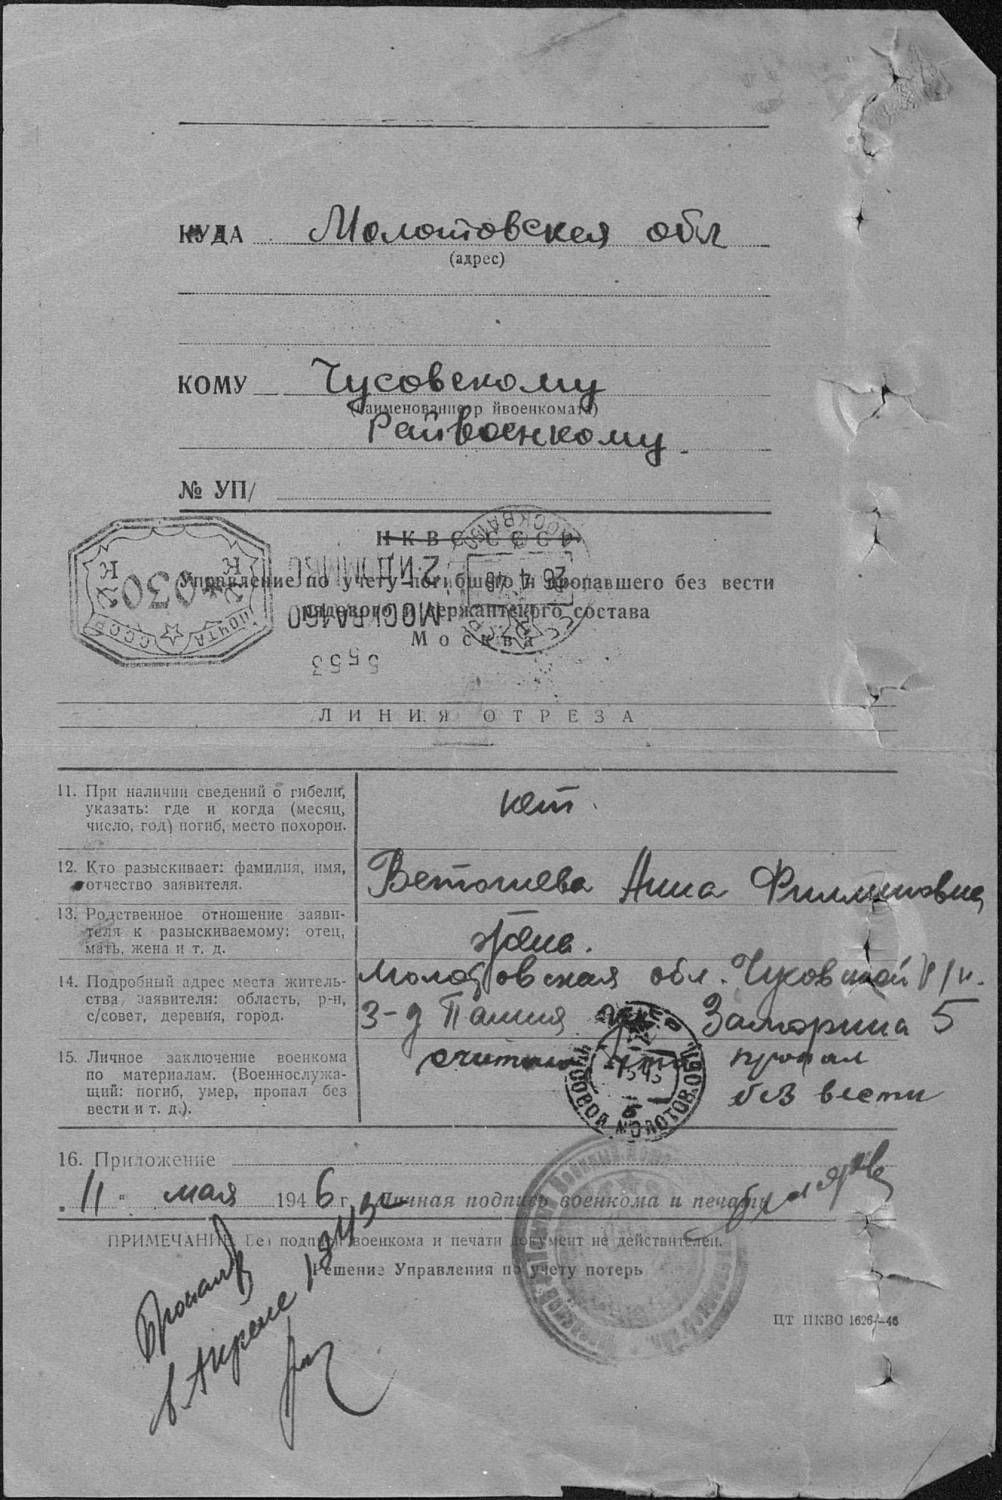 КУДА Молотовская обл
(адрес)
КОМУ Чусовскому
(наименование р йвоенкомата)
Райвоенкому.
№ УП/
НКВС СССР
Управление по учету погибшего и пропавшего без вести
рядового и сержантского состава
Москва
ПОЧТА СССР
030
МОСКВА 160
5553
26 4 46
ЛИНИЯ ОТРЕЗА
11. При наличии сведений о гибели,
указать: где и когда (месяц,
число, год) погиб, место похорон.
нет.
12. Кто разыскивает: фамилия, имя,
отчество заявителя.
Ветошева Анна Филипповна
13. Родственное отношение заяви-
теля к разыскиваемому: отец,
мать, жена и т. д.
жена.
14. Подробный адрес места житель-
ства заявителя: область, р-н,
с/совет, деревня, город.
Молотовская обл. Чусовской р/н.
з-д Пашия
5
15. Личное заключение военкома
по материалам. (Военнослужа-
щий: погиб, умер, пропал без
вести и т. д.).
считаю что пропал
без вести
16. Приложение
11 " мая 1946 г. Личная подпись военкома и печать
ПРИМЕЧАНИЕ Без подписи военкома и печати документ не действителен.
Решение Управления по учету потерь
Пропал б/в
в Апреле 1943г
ЦТ НКВС 1626—46